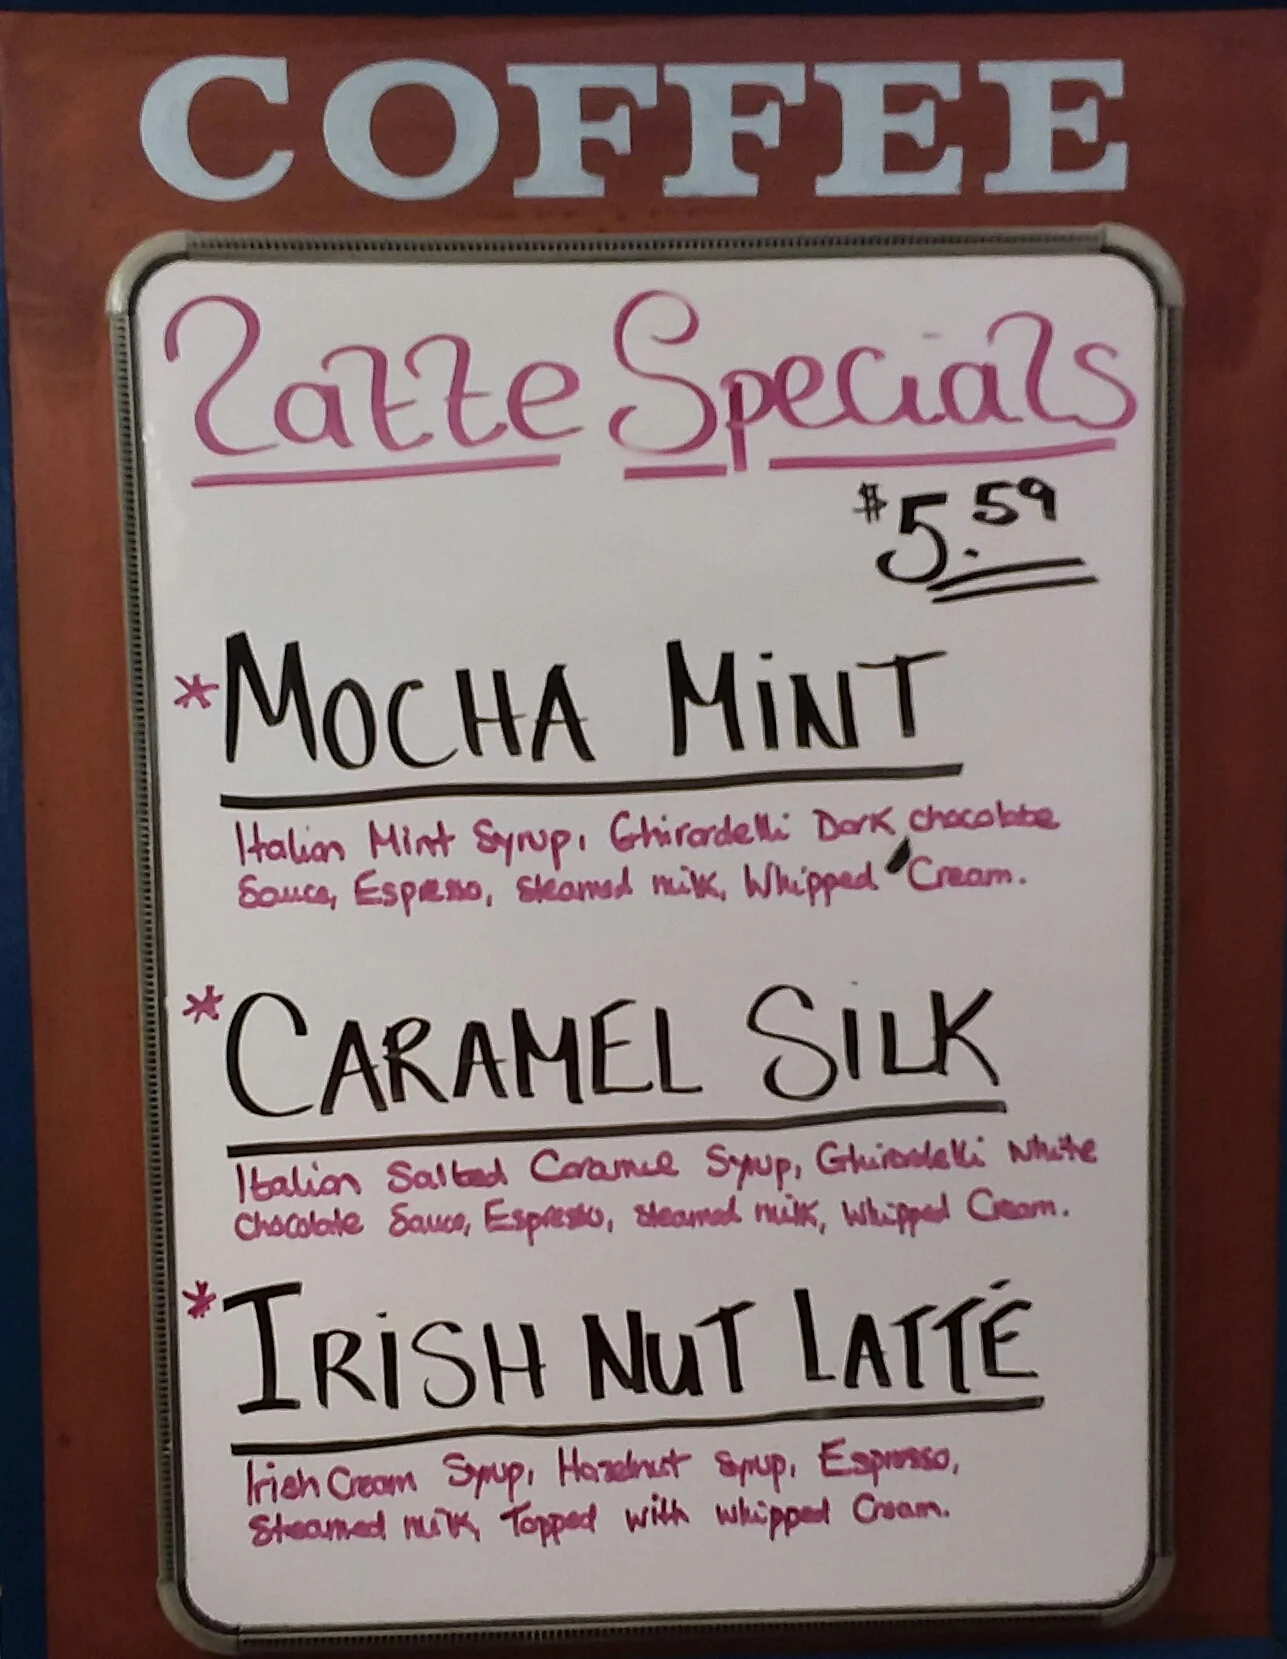 COFFEE
Latte Specials
$5.59
*MOCHA MiNT
Italian Mint Syrup, Ghirardelli Dark chocolate
Sauce, Espresso, Steamed milk, Whipped Cream.
*CARAMEL SiLK
Italian Salted Caramel Syrup, Ghirardelli White
chocolate Sauce, Espresso, steamed milk, Whipped Cream.
*IRiSH NuT LATTÉ
Irish Cream Syrup, Hazelnut Syrup, Espresso,
Steamed milk, Topped with whipped Cream.